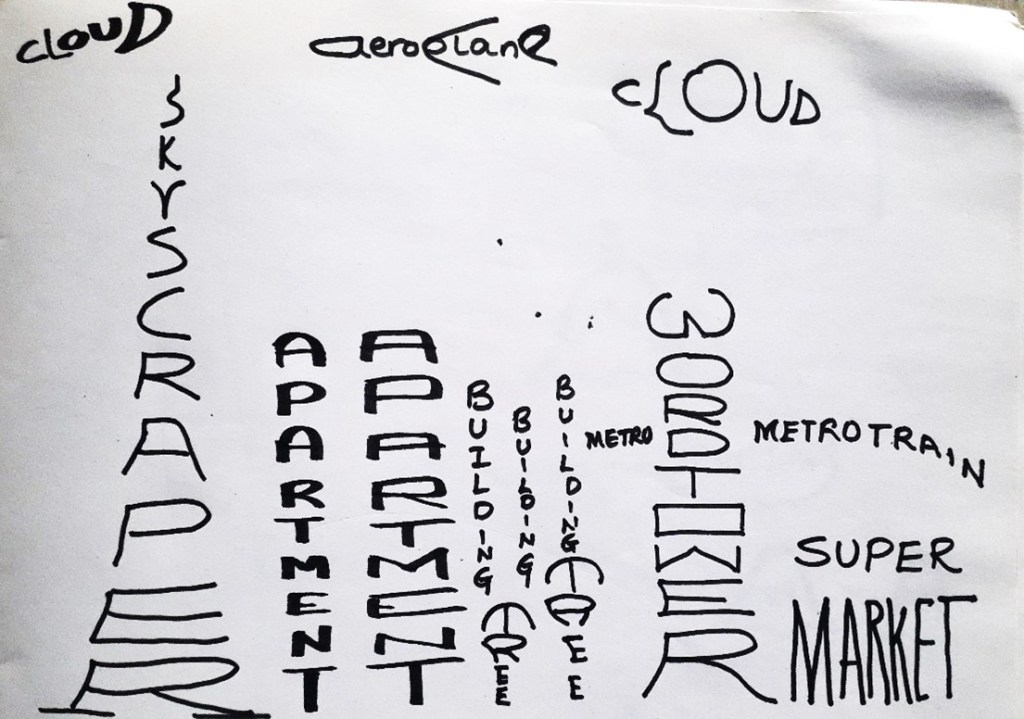 CLOUD
aeroplane
CLOUD
SKYSCRAPER
APARTMENT
APARTMENT
BUILDING
BUILDING
BUILDING
TREE
TREE
METRO
WORDTOWER
METROTRAIN
SUPER
MARKET